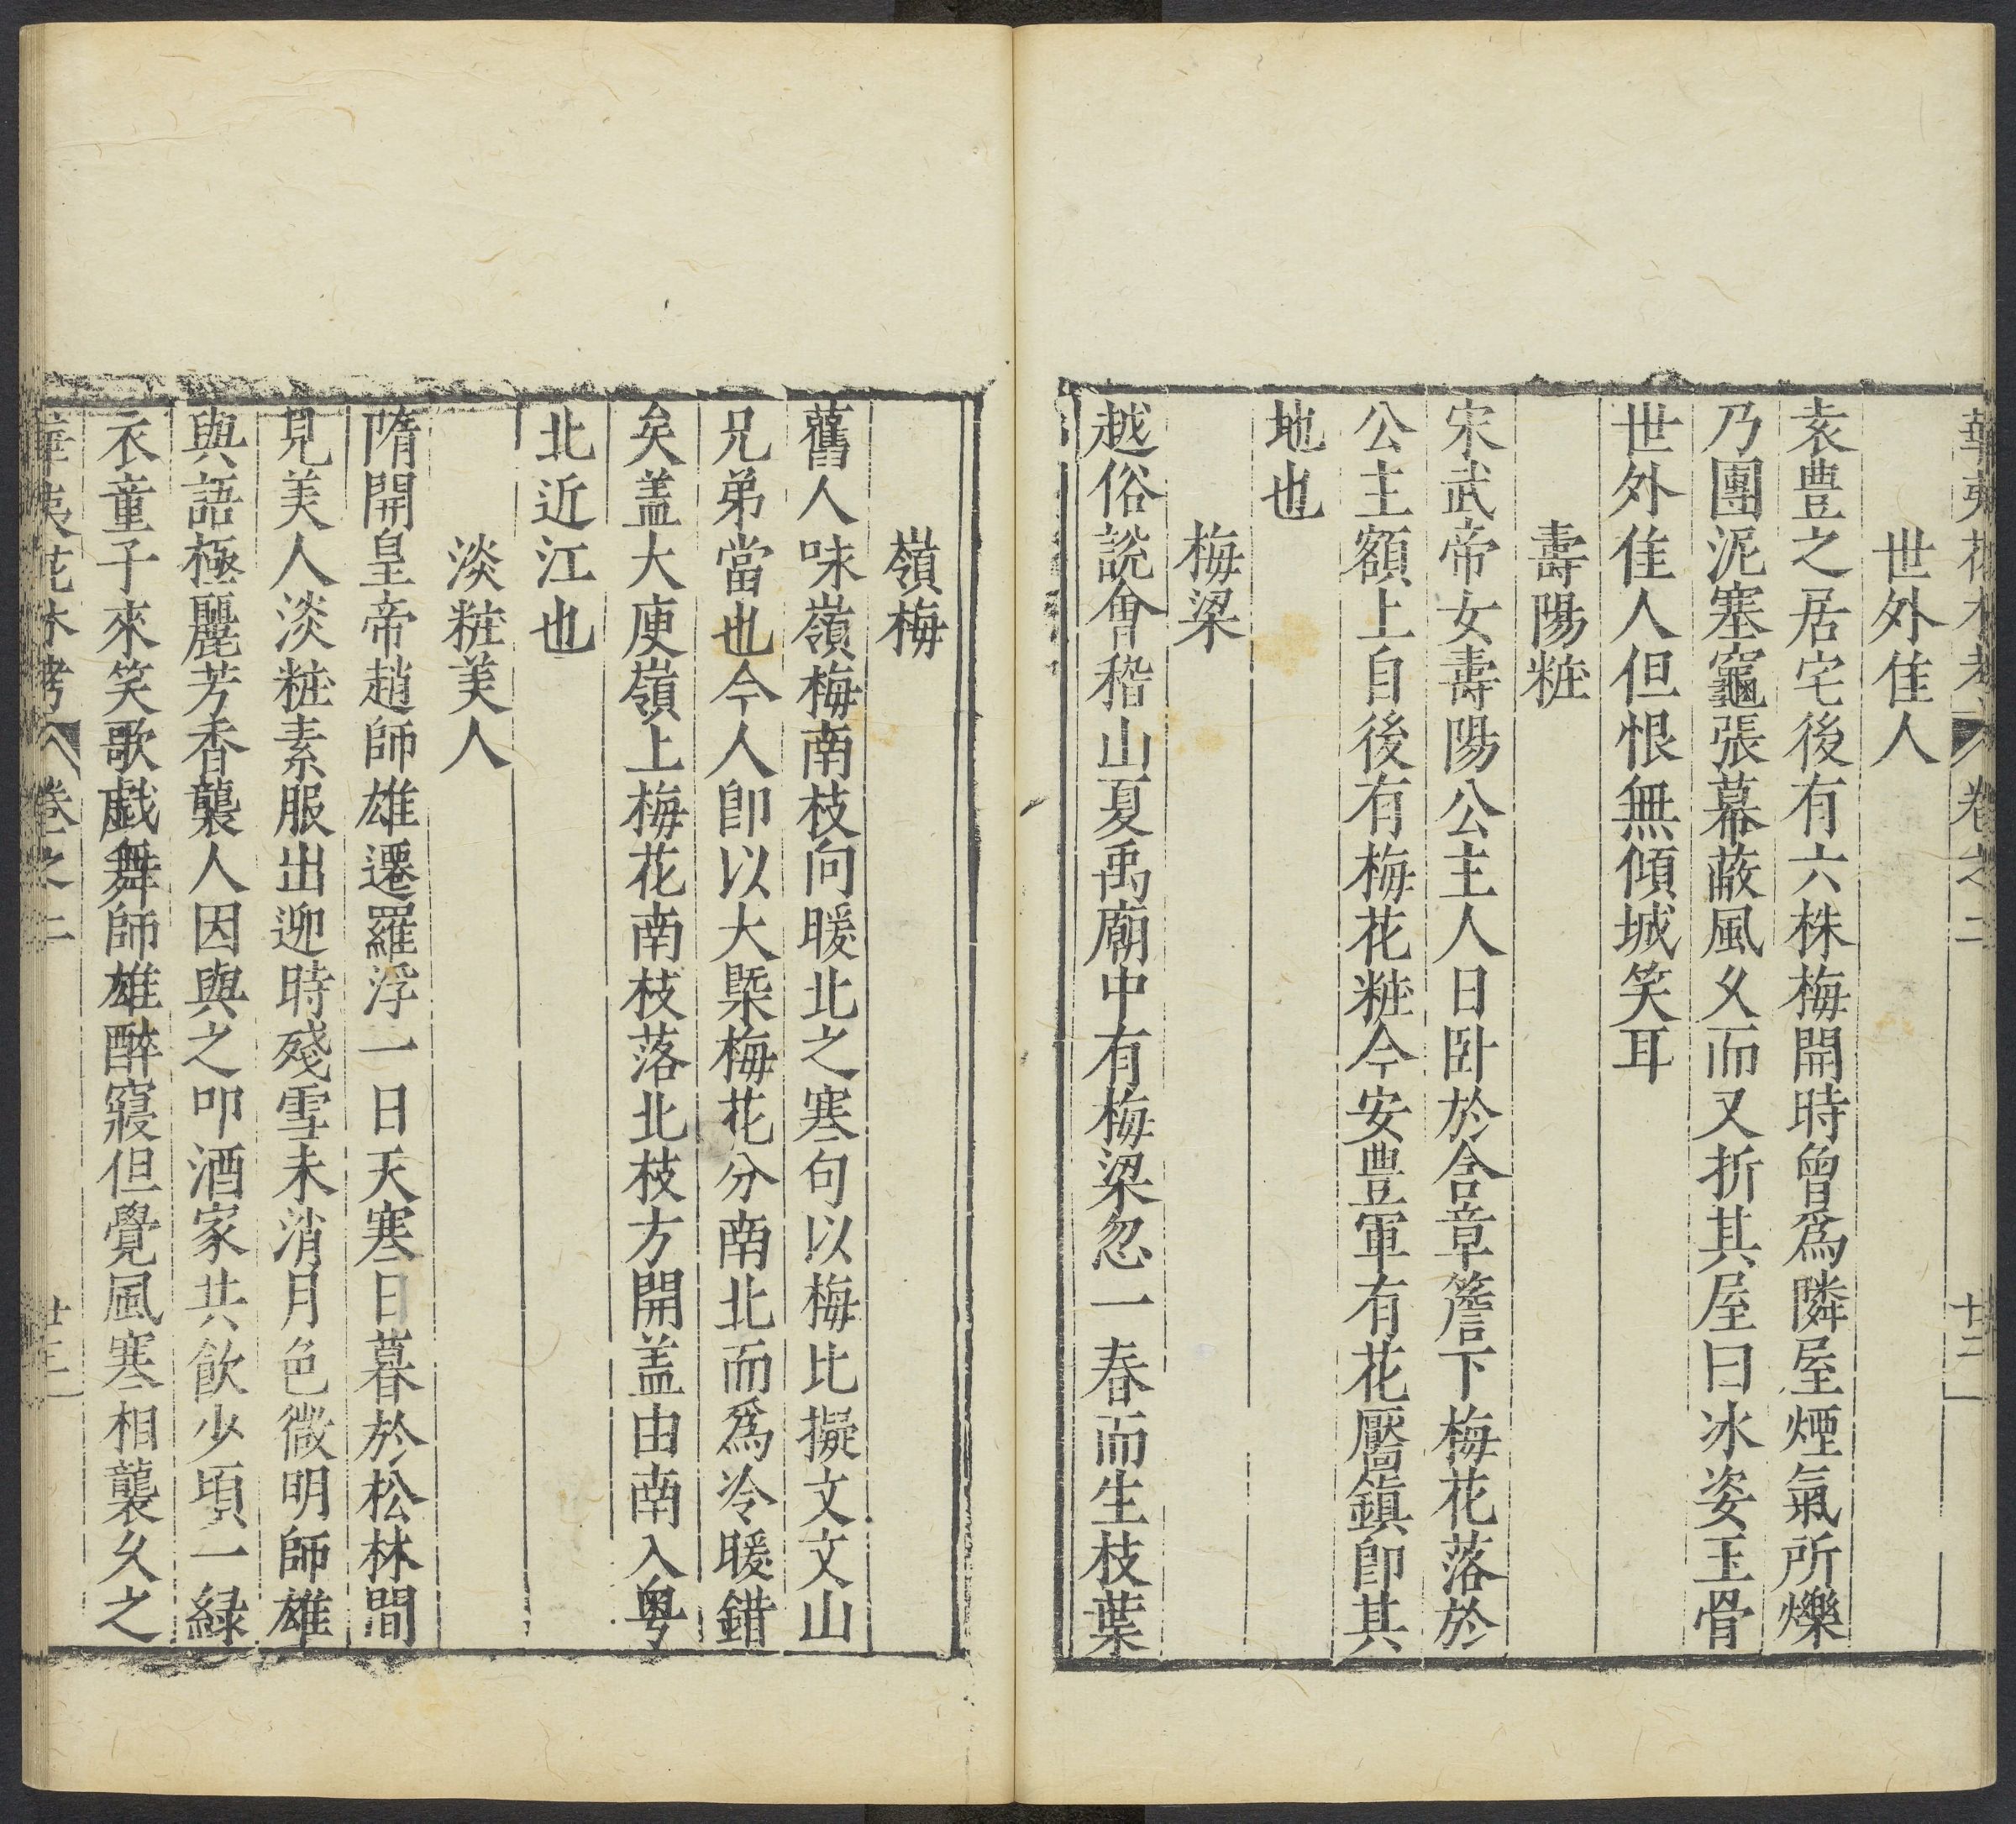 華夷花木考 卷之二 廿二
世外隹人
袁豊之居宅後有六株梅開時曾爲隣屋煙氣所爍
乃團泥塞竈張幕蔽風乆而又折其屋曰冰姿玉骨
世外隹人但恨無傾城笑耳
壽陽粧
宋武帝女壽陽公主人日卧於含章簷下梅花落於
公主額上自後有梅花粧今安豊軍有花靨鎮卽其
地也
梅梁
越俗說會稽山夏禹廟中有梅梁忽一春而生枝葉
嶺梅
舊人味嶺梅南枝向暖北之寒句以梅比擬文文山
兄弟當也今人卽以大槩梅花分南北而爲冷暖錯
矣盖大庾嶺上梅花南枝落北枝方開盖由南入粤
北近江也
淡粧美人
隋開皇帝趙師雄遷羅浮一日天寒日暮於松林間
見美人淡粧素服出迎時殘雪未消月色微明師雄
與語極麗芳香襲人因與之叩酒家共飲少頃一緑
衣童子來笑歌戯舞師雄醉寢但覺風寒相襲乆之
華夷花木考 卷之二 廿三